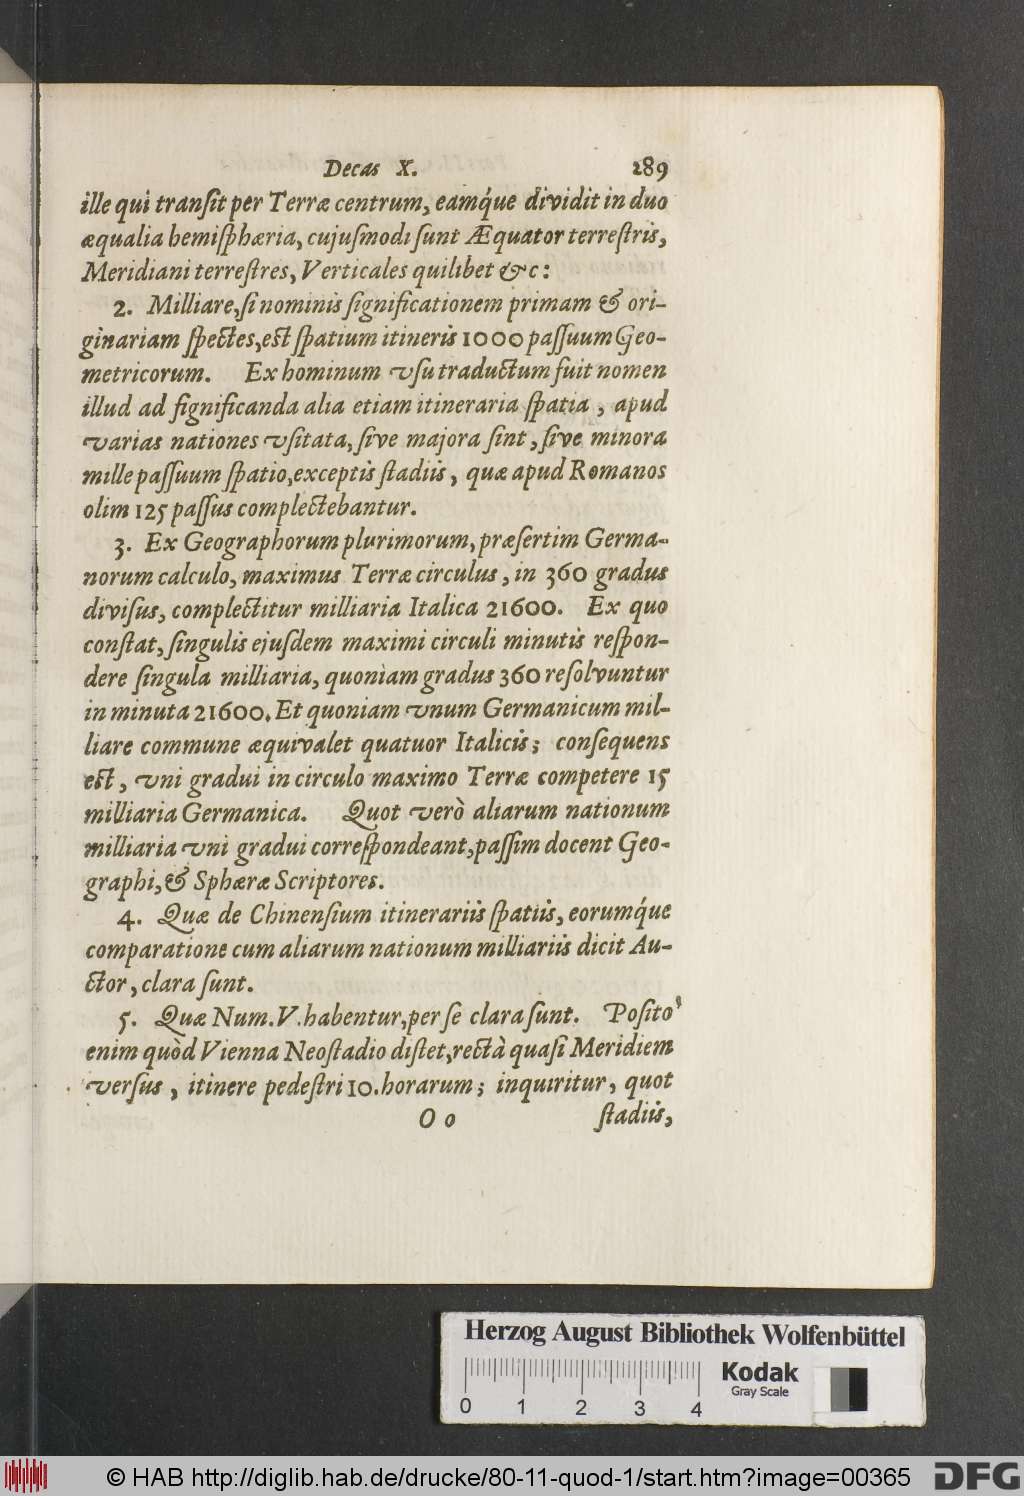 Decas X. 289
ille qui tranſit per Terræ centrum, eamq́ue dividit in duo
æqualia hemiſphæria, cujuſmodi ſunt Æquator terreſtris,
Meridiani terreſtres, Verticales quilibet &c:
2. Milliare, ſi nominis ſignificationem primam & ori-
ginariam ſpectes, est ſpatium itineris 1000 paſſuum Geo-
metricorum. Ex hominum vſu traductum fuit nomen
illud ad ſignificanda alia etiam itineraria ſpatia, apud
varias nationes vſitata, ſive majora ſint, ſive minora
mille paſſuum ſpatio, exceptis ſtadiis, quæ apud Romanos
olim 125 paſſus complectebantur.
3. Ex Geographorum plurimorum, præſertim Germa-
norum calculo, maximus Terræ circulus, in 360 gradus
diviſus, complectitur milliaria Italica 21600. Ex quo
conſtat, ſingulis ejuſdem maximi circuli minutis reſpon-
dere ſingula milliaria, quoniam gradus 360 reſolvuntur
in minuta 21600. Et quoniam vnum Germanicum mil-
liare commune æquivalet quatuor Italicis; conſequens
est, vni gradui in circulo maximo Terræ competere 15
milliaria Germanica. Quot verò aliarum nationum
milliaria vni gradui correſpondeant, paſſim docent Geo-
graphi, & Sphæræ Scriptores.
4. Quæ de Chinenſium itinerariis ſpatiis, eorumq́ue
comparatione cum aliarum nationum milliariis dicit Au-
ctor, clara ſunt.
5. Quæ Num. V. habentur, per ſe clara ſunt. Poſito
enim quòd Vienna Neoſtadio diſtet, rectà quaſi Meridiem
verſus, itinere pedeſtri 10. horarum; inquiritur, quot
O o ſtadiis,
Herzog August Bibliothek Wolfenbüttel
Kodak
Gray Scale
0 1 2 3 4
© HAB http://diglib.hab.de/drucke/80-11-quod-1/start.htm?image=00365
DFG